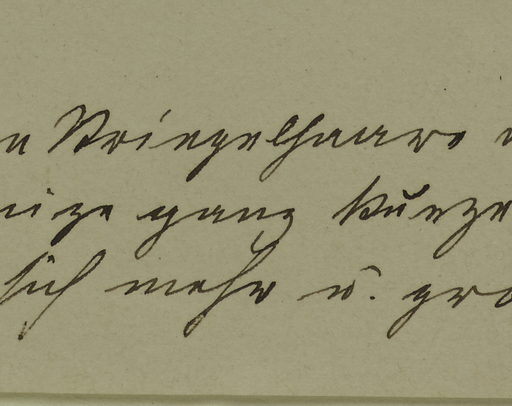 n Striegelhaare
nige ganz kurze
sich mehr u. gro